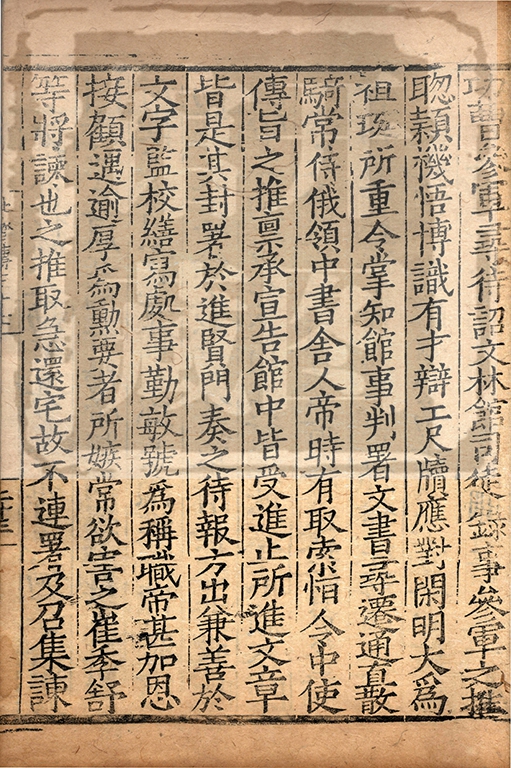 功曹參軍尋待詔文林館司徒錄事參軍之推
聰穎機悟博識有才辯工尺牘應對閑明大為
祖珽所重令掌知館事判署文書尋遷通直散
騎常侍俄領中書舍人帝時有取索恒令中使
傳旨之推稟承宣告館中皆受進止所進文章
皆是其封署於進賢門奏之待報方出兼善於
文字監校繕寫處事勤敏號為稱職帝甚加恩
接顧遇逾厚為勳要者所嫉常欲害之崔季舒
等將諫也之推取急還宅故不連署及召集諫
二十三